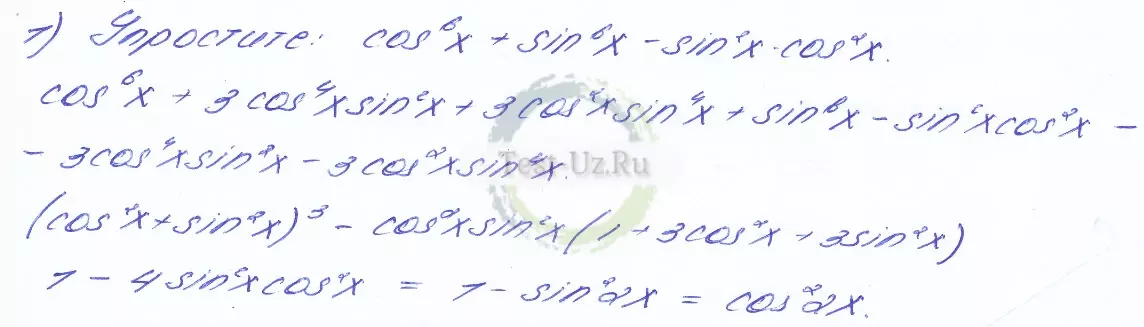 1) Упростите: cos⁶x + sin⁶x - sin²x·cos²x.
cos⁶x + 3cos⁴xsin²x + 3cos²xsin⁴x + sin⁶x - sin²xcos²x -
- 3cos⁴xsin²x - 3cos²xsin⁴x.
Test-Uz.Ru
(cos²x+sin²x)³ - cos²xsin²x(1+3cos²x+3sin²x)
1 - 4sin²xcos²x = 1 - sin²2x = cos²2x.